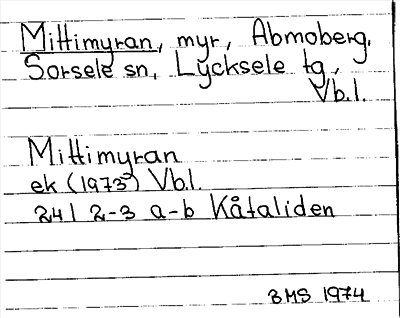 Mittimyran, myr, Abmoberg,
Sorsele sn, Lycksele tg,
Vb.l.
Mittimyran
ek (1973) Vb.l.
24I 2-3 a-b Kåtaliden
BMS 1974